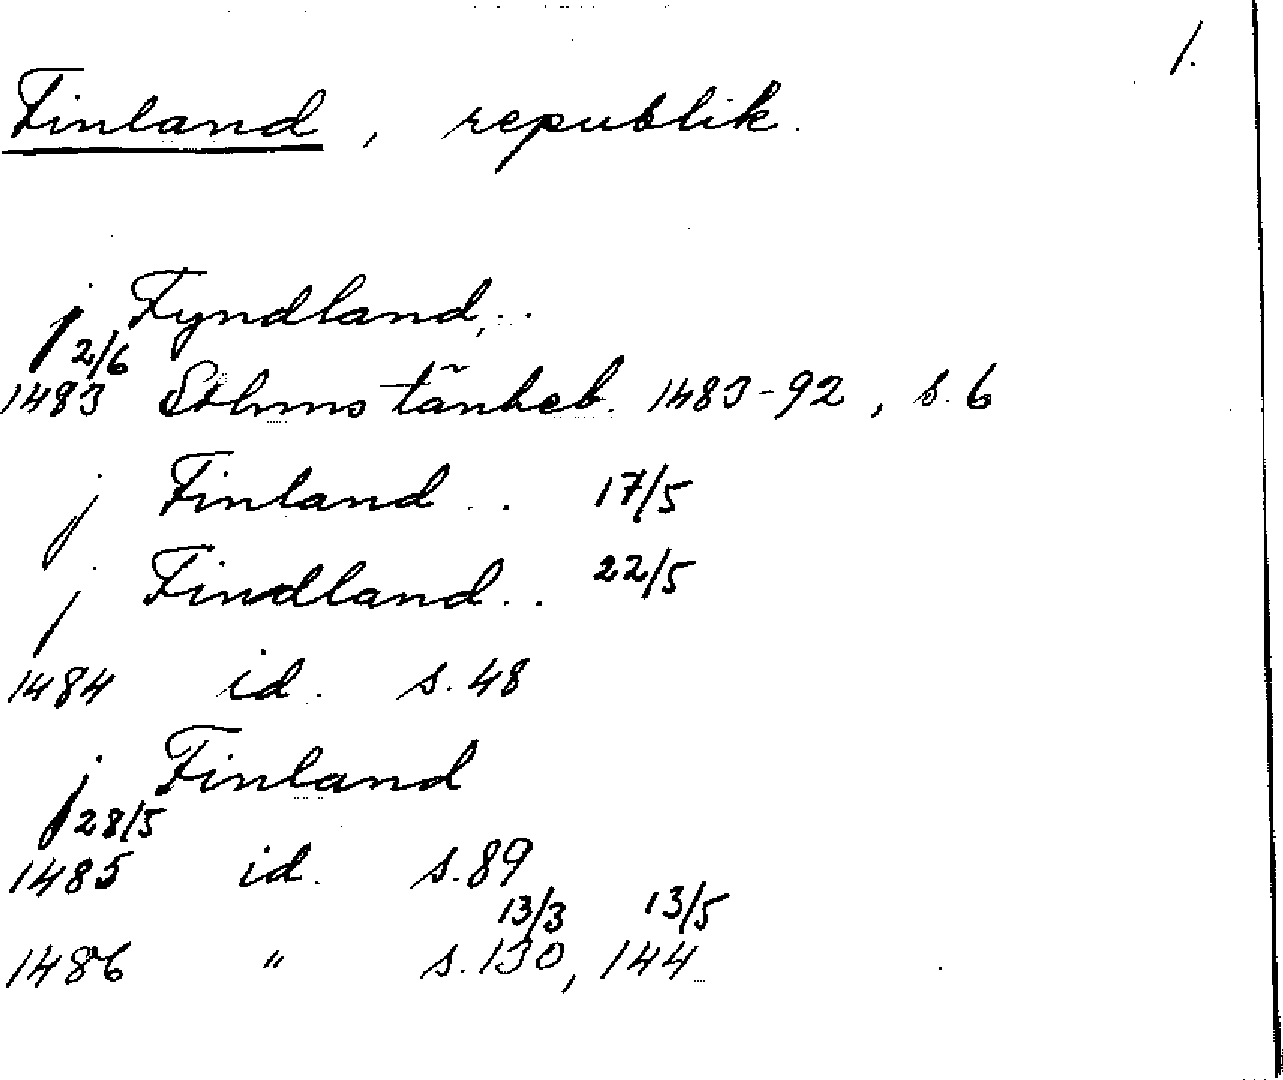 1.
Finland, republik.
j Fyndland...
2/6
1483 Sthms tänkeb. 1483-92, s. 6
j Finland .. 17/5
j Findland .. 22/5
1484 id. s. 48
j Finland
28/5
1485 id. s. 89
13/3 13/5
1486 " s. 130, 144